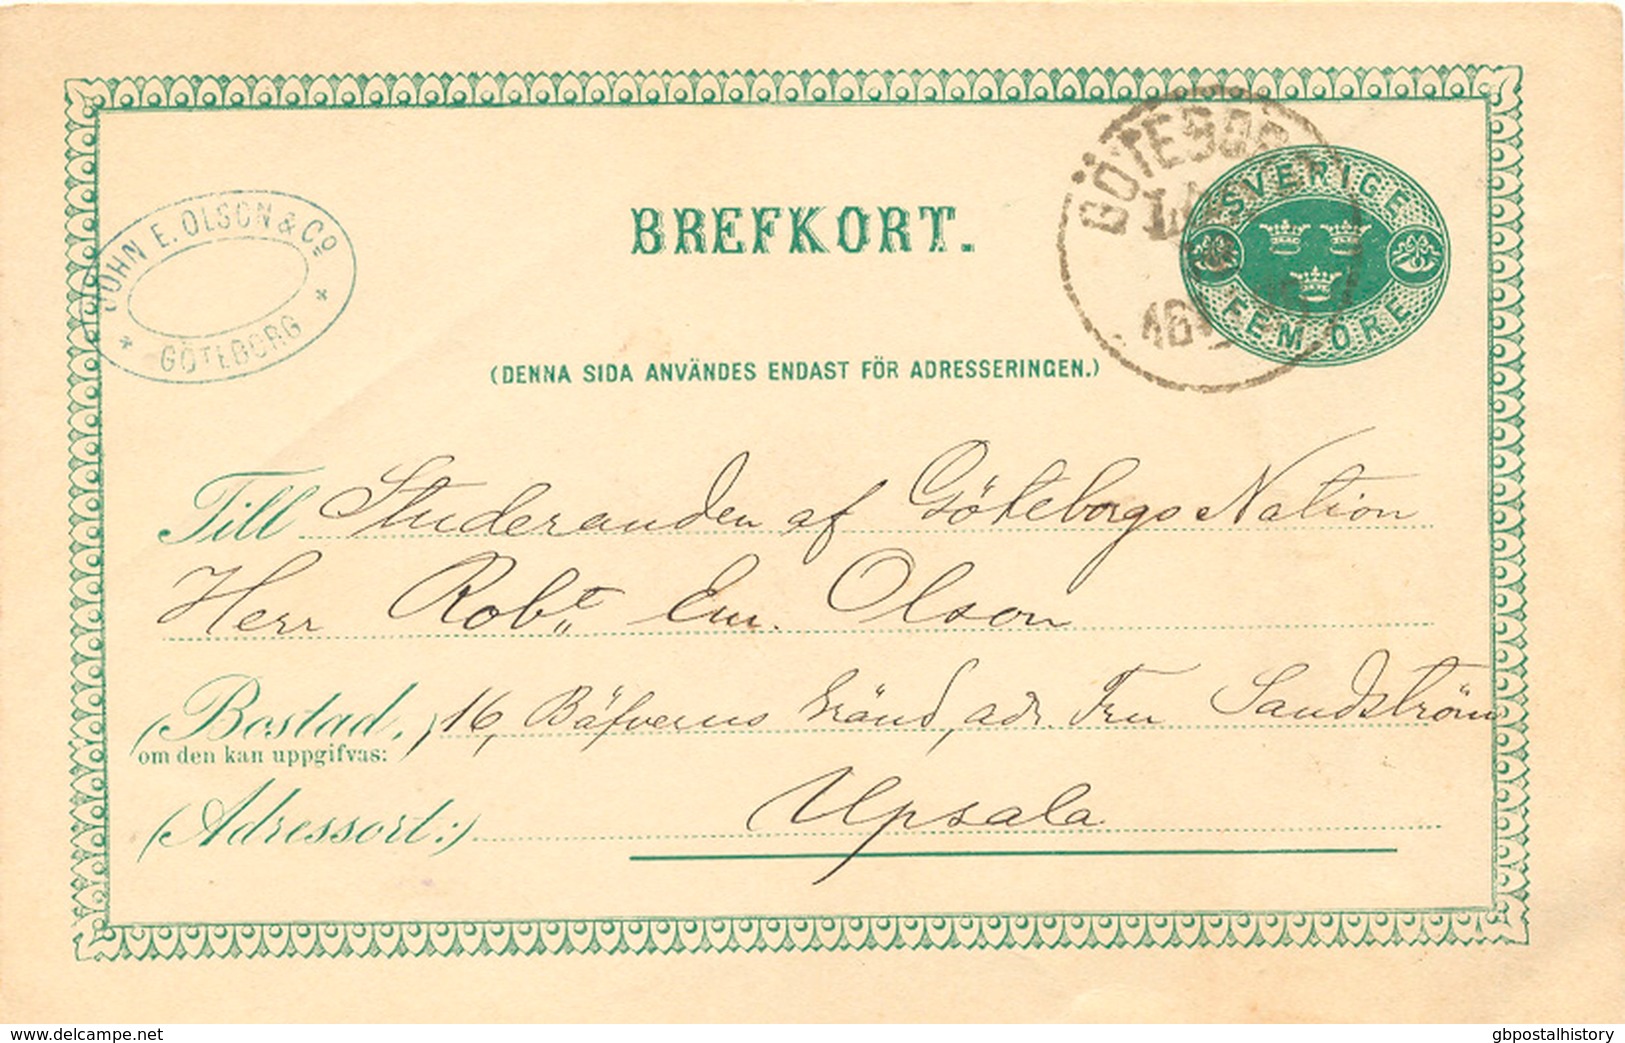 BREFKORT.
JOHN E. OLSON & Co
GÖTEBORG
GÖTEBORG
SVERIGE
FEM ÖRE
(DENNA SIDA ANVÄNDES ENDAST FÖR ADRESSERINGEN.)
Till Studeranden af Göteborgs Nation
Herr Robt Em. Olson
(Bostad,) 16, Bäfverns Gränd, adr. Fru Sandström
om den kan uppgifvas:
(Adressort:) Upsala
www.delcampe.net
gbpostalhistory